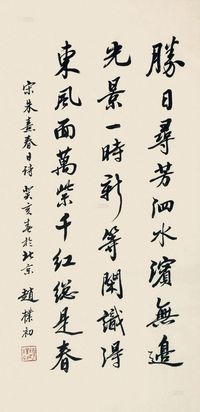 勝日尋芳泗水濱無邊
光景一時新等閑識得
東風面萬紫千紅總是春
宋朱熹春日詩 癸亥春於北京 趙樸初